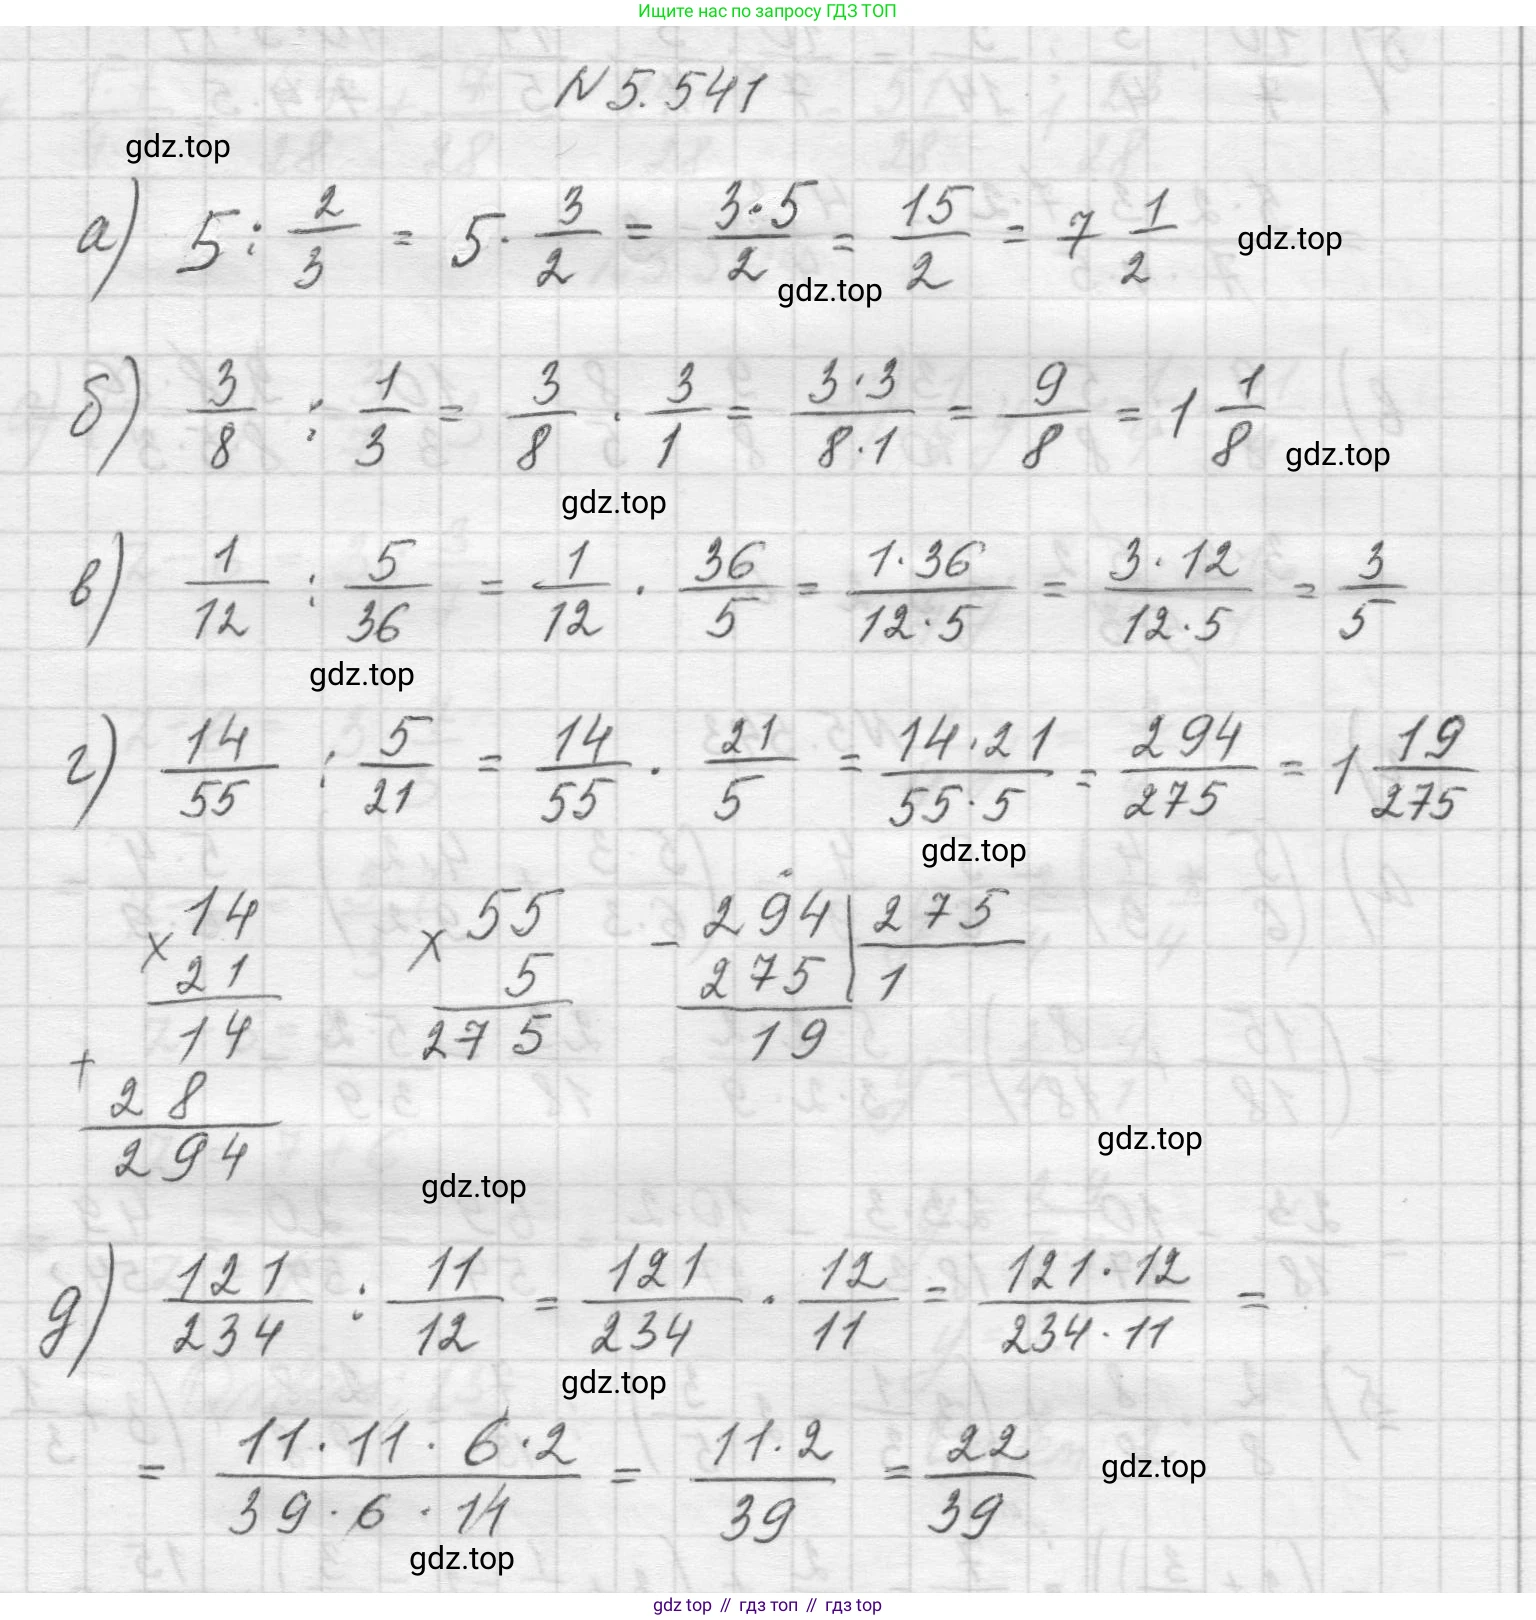 Ищите нас по запросу ГДЗ ТОП
N 5.541
gdz.top
а) 5 : 2/3 = 5 · 3/2 = 3·5/2 = 15/2 = 7 1/2 gdz.top
gdz.top
б) 3/8 : 1/3 = 3/8 · 3/1 = 3·3/8·1 = 9/8 = 1 1/8 gdz.top
gdz.top
в) 1/12 : 5/36 = 1/12 · 36/5 = 1·36/12·5 = 3·12/12·5 = 3/5
gdz.top
г) 14/55 : 5/21 = 14/55 · 21/5 = 14·21/55·5 = 294/275 = 1 19/275
gdz.top
14 55 294 | 275
× 21 × 5 − 275 | 1
14 275 19
+ 28
gdz.top
294
gdz.top
д) 121/234 : 11/12 = 121/234 · 12/11 = 121·12/234·11 =
gdz.top
= 11·11·6·2/39·6·11 = 11·2/39 = 22/39 gdz.top
gdz.top
gdz top // гдз топ // гдз top